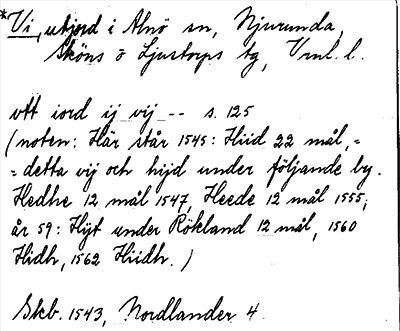 *Vi, utjord i Alnö sn, Njurunda,
Sköns o Ljustorps tg, Vml. l.
vtt iord ij vij -- s. 125
(noten: Här står 1545: Hiid 22 mål, =
= detta vij och hijd under följande by.
Hedhe 12 mål 1547, Heede 12 mål 1555;
år 59: Hijt under Rökland 12 mål, 1560
Hidh, 1562 Hiidh. )
Skb. 1543, Nordlander 4.